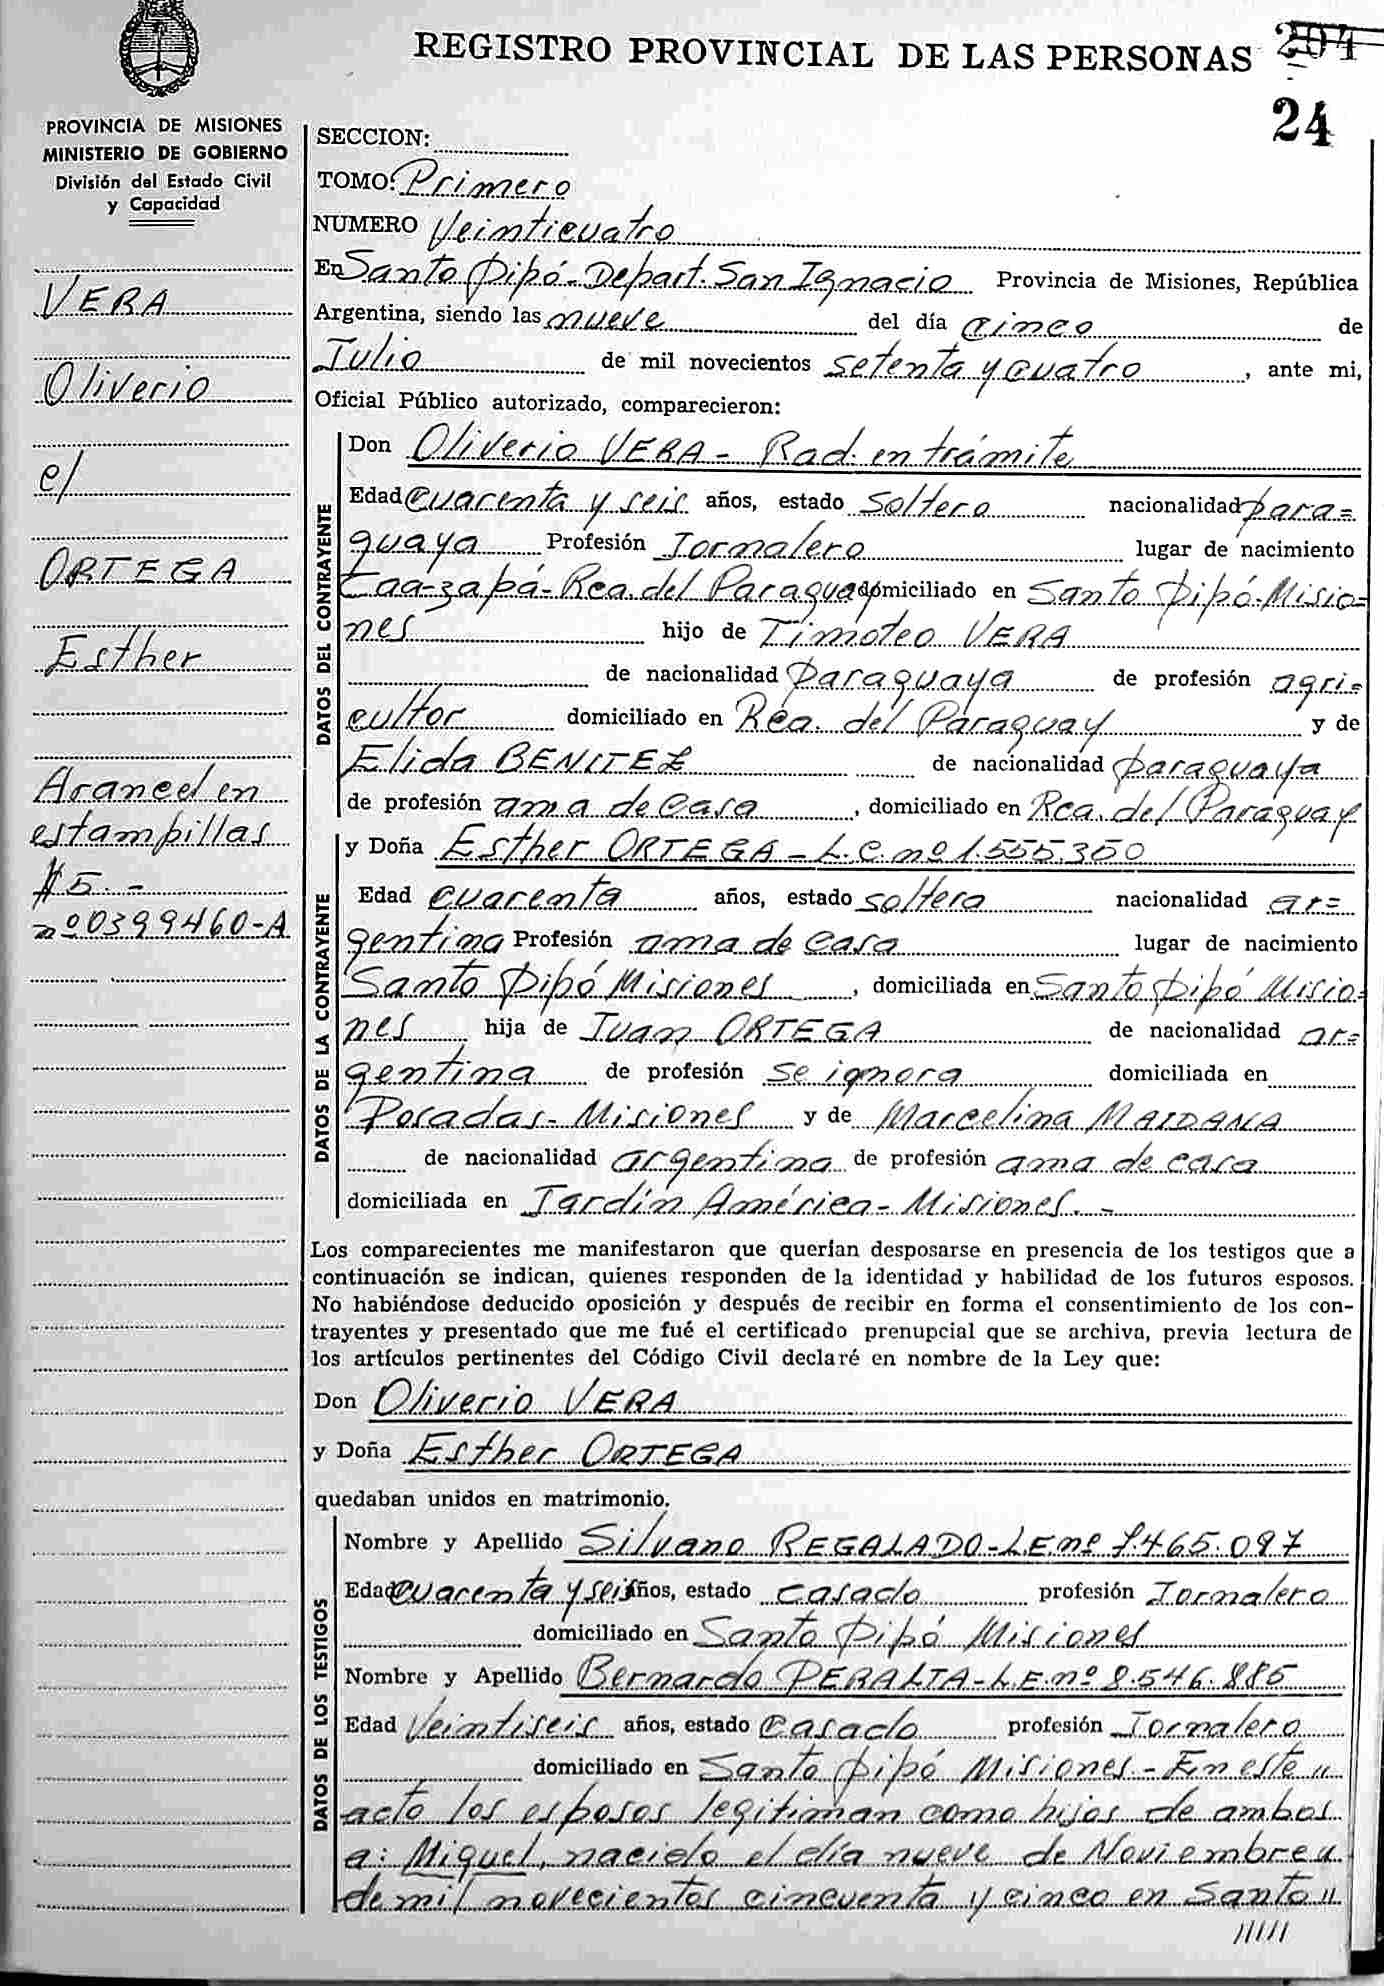 REGISTRO PROVINCIAL DE LAS PERSONAS 204
24
PROVINCIA DE MISIONES
MINISTERIO DE GOBIERNO
División del Estado Civil
y Capacidad
VERA
Oliverio
c/
ORTEGA
Esther
Arancel en
estampillas
$5.-
nº0399460-A
SECCION:
TOMO: Primero
NUMERO Veinticuatro
En Santo Pipó-Depart. San Ignacio Provincia de Misiones, República
Argentina, siendo las nueve del día cinco de
Julio de mil novecientos setenta y cuatro, ante mi,
Oficial Público autorizado, comparecieron:
DATOS DEL CONTRAYENTE
Don Oliverio VERA - Rad. en trámite
Edad cuarenta y seis años, estado soltero nacionalidad para=
guaya Profesión Jornalero lugar de nacimiento
Caa-zapá-Rca. del Paraguay domiciliado en Santo Pipó-Misio=
nes hijo de Timoteo VERA
de nacionalidad Paraguaya de profesión agri=
cultor domiciliado en Rca. del Paraguay y de
Elida BENITEZ de nacionalidad paraguaya
de profesión ama de casa, domiciliado en Rca. del Paraguay
DATOS DE LA CONTRAYENTE
y Doña Esther ORTEGA - L.C. nº 1.555.350
Edad cuarenta años, estado soltera nacionalidad ar=
gentina Profesión ama de casa lugar de nacimiento
Santo Pipó Misiones, domiciliada en Santo Pipó Misio=
nes hija de Juan ORTEGA de nacionalidad ar=
gentina de profesión se ignora domiciliada en
Posadas-Misiones y de Marcelina MAIDANA
de nacionalidad argentina de profesión ama de casa
domiciliada en Jardín América-Misiones.-
Los comparecientes me manifestaron que querían desposarse en presencia de los testigos que a
continuación se indican, quienes responden de la identidad y habilidad de los futuros esposos.
No habiéndose deducido oposición y después de recibir en forma el consentimiento de los con-
trayentes y presentado que me fué el certificado prenupcial que se archiva, previa lectura de
los artículos pertinentes del Código Civil declaré en nombre de la Ley que:
Don Oliverio VERA
y Doña Esther ORTEGA
quedaban unidos en matrimonio.
DATOS DE LOS TESTIGOS
Nombre y Apellido Silvano REGALADO-LE nº 7.465.097
Edad cuarenta y seis años, estado casado profesión Jornalero
domiciliado en Santo Pipó Misiones
Nombre y Apellido Bernardo PERALTA-L.E. nº 8.546.885
Edad Veintiseis años, estado casado profesión Jornalero
domiciliado en Santo Pipó Misiones - En este "
acto los esposos legitiman como hijos de ambos
a: Miguel, nacido el día nueve de Noviembre "
de mil novecientos cincuenta y cinco en Santo "
/////